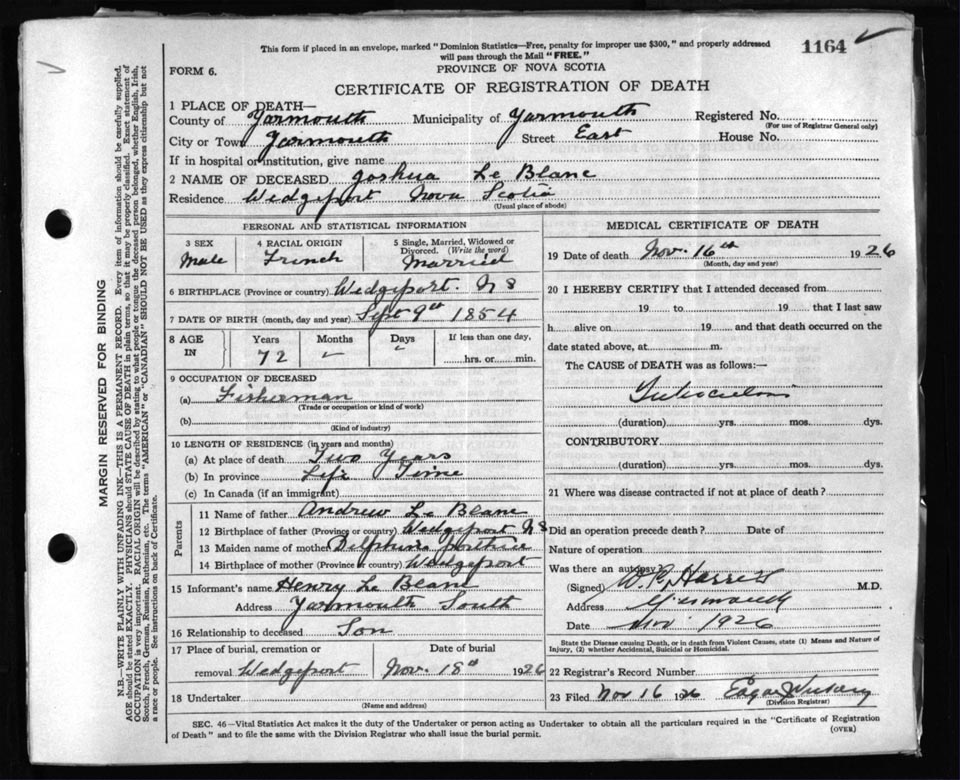 This form if placed in an envelope, marked "Dominion Statistics—Free, penalty for improper use $300," and properly addressed
will pass through the Mail "FREE."
1164
FORM 6.
PROVINCE OF NOVA SCOTIA
CERTIFICATE OF REGISTRATION OF DEATH
MARGIN RESERVED FOR BINDING
N.B.—WRITE PLAINLY WITH UNFADING INK—THIS IS A PERMANENT RECORD. Every item of information should be carefully supplied.
AGE should be stated EXACTLY. PHYSICIANS should STATE CAUSE OF DEATH in plain terms, so that it may be properly classified. Exact statement of
OCCUPATION is very important. RACIAL ORIGIN will be described by stating to what people or tongue the deceased person belonged, whether English, Irish,
Scotch, French, German, Russian, Ruthenian, etc. The terms "AMERICAN" or "CANADIAN" SHOULD NOT BE USED as they express citizenship but not
a race or people. See instructions on back of Certificate.
1 PLACE OF DEATH—
County of Yarmouth Municipality of Yarmouth Registered No.
(For use of Registrar General only)
City or Town Yarmouth Street East House No.
If in hospital or institution, give name
2 NAME OF DECEASED Joshua Le Blanc
Residence Wedgeport Nova Scotia
(Usual place of abode)
PERSONAL AND STATISTICAL INFORMATION
3 SEX 4 RACIAL ORIGIN 5 Single, Married, Widowed or
Divorced. (Write the word)
Male French Married
6 BIRTHPLACE (Province or country) Wedgeport. N S
7 DATE OF BIRTH (month, day and year) Sept 9th 1854
8 AGE IN Years Months Days If less than one day,
72 hrs. or min.
9 OCCUPATION OF DECEASED
(a) Fisherman
(Trade or occupation or kind of work)
(b)
(Kind of industry)
10 LENGTH OF RESIDENCE (in years and months)
(a) At place of death Two Years
(b) In province Life Time
(c) In Canada (if an immigrant)
Parents
11 Name of father Andrew Le Blanc
12 Birthplace of father (Province or Country) Wedgeport N S
13 Maiden name of mother Delphine
14 Birthplace of mother (Province or Country) Wedgeport
15 Informant's name Henry Le Blanc
Address Yarmouth South
16 Relationship to deceased Son
17 Place of burial, cremation or Date of burial
removal Wedgeport Nov. 18th 1926
18 Undertaker
(Name and address)
MEDICAL CERTIFICATE OF DEATH
19 Date of death Nov. 16th 1926
(Month, day and year)
20 I HEREBY CERTIFY that I attended deceased from
19 to 19 that I last saw
h alive on 19 and that death occurred on the
date stated above, at m.
The CAUSE OF DEATH was as follows:—
Tuberculosis
(duration) yrs. mos. dys.
CONTRIBUTORY
(duration) yrs. mos. dys.
21 Where was disease contracted if not at place of death?
Did an operation precede death? Date of
Nature of operation
Was there an autopsy?
(Signed) Harris M.D.
Address Yarmouth
Date Nov. 1926
State the Disease causing Death, or in death from Violent Causes, state (1) Means and Nature of
Injury, (2) whether Accidental, Suicidal or Homicidal.
22 Registrar's Record Number
23 Filed Nov 16 1926 Edgar
(Division Registrar)
SEC. 46—Vital Statistics Act makes it the duty of the Undertaker or person acting as Undertaker to obtain all the particulars required in the "Certificate of Registration
of Death" and to file the same with the Division Registrar who shall issue the burial permit.
(OVER)